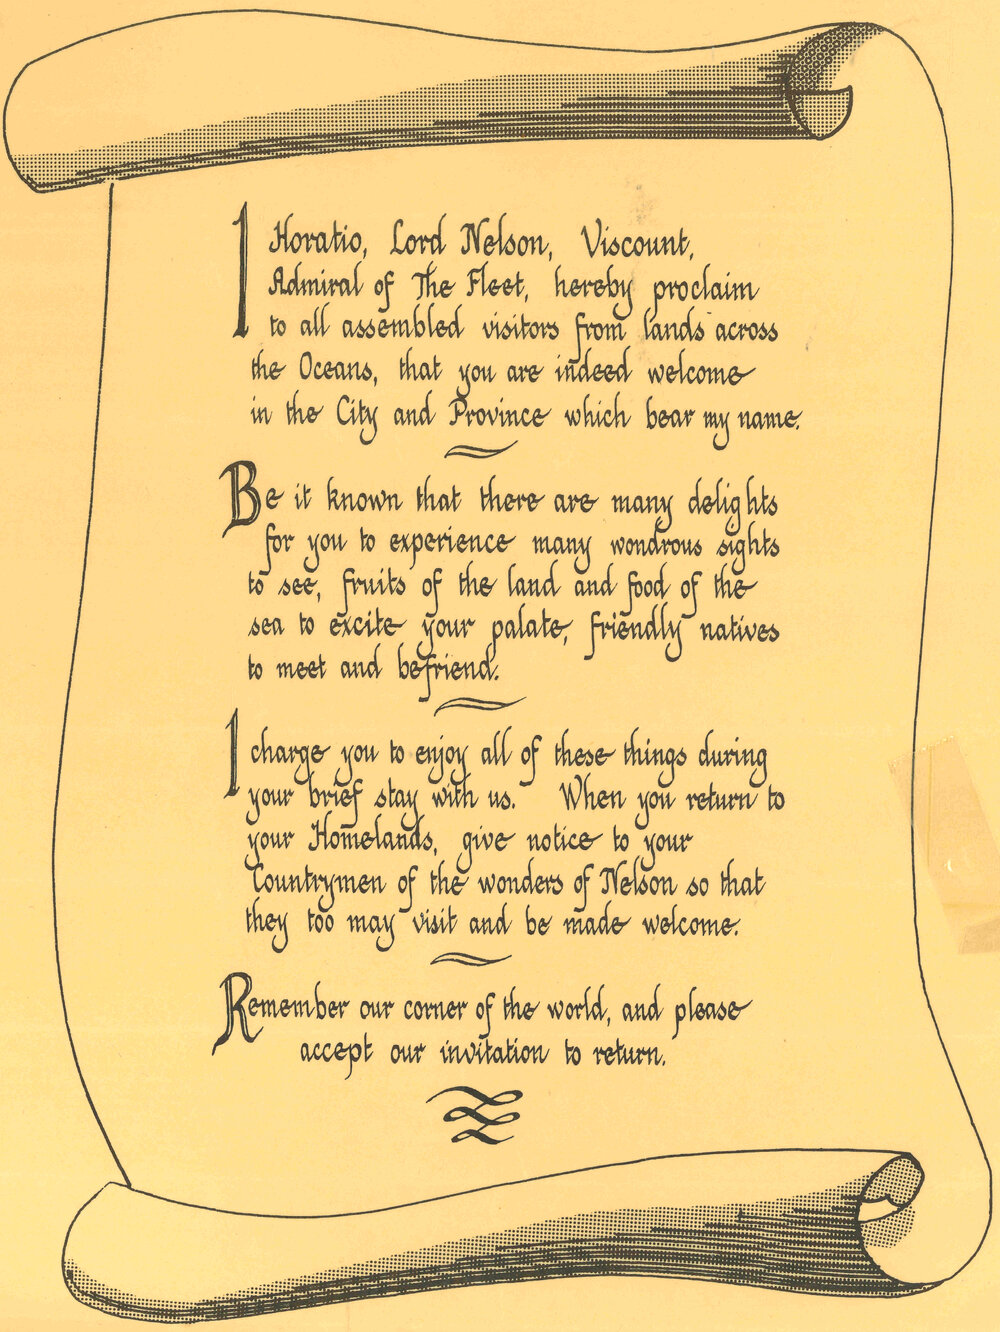 I Horatio, Lord Nelson, Viscount,
Admiral of The Fleet, hereby proclaim
to all assembled visitors from lands across
the Oceans, that you are indeed welcome
in the City and Province which bear my name.
Be it known that there are many delights
for you to experience many wondrous sights
to see, fruits of the land and food of the
sea to excite your palate, friendly natives
to meet and befriend.
I charge you to enjoy all of these things during
your brief stay with us. When you return to
your Homelands, give notice to your
Countrymen of the wonders of Nelson so that
they too may visit and be made welcome.
Remember our corner of the world, and please
accept our invitation to return.